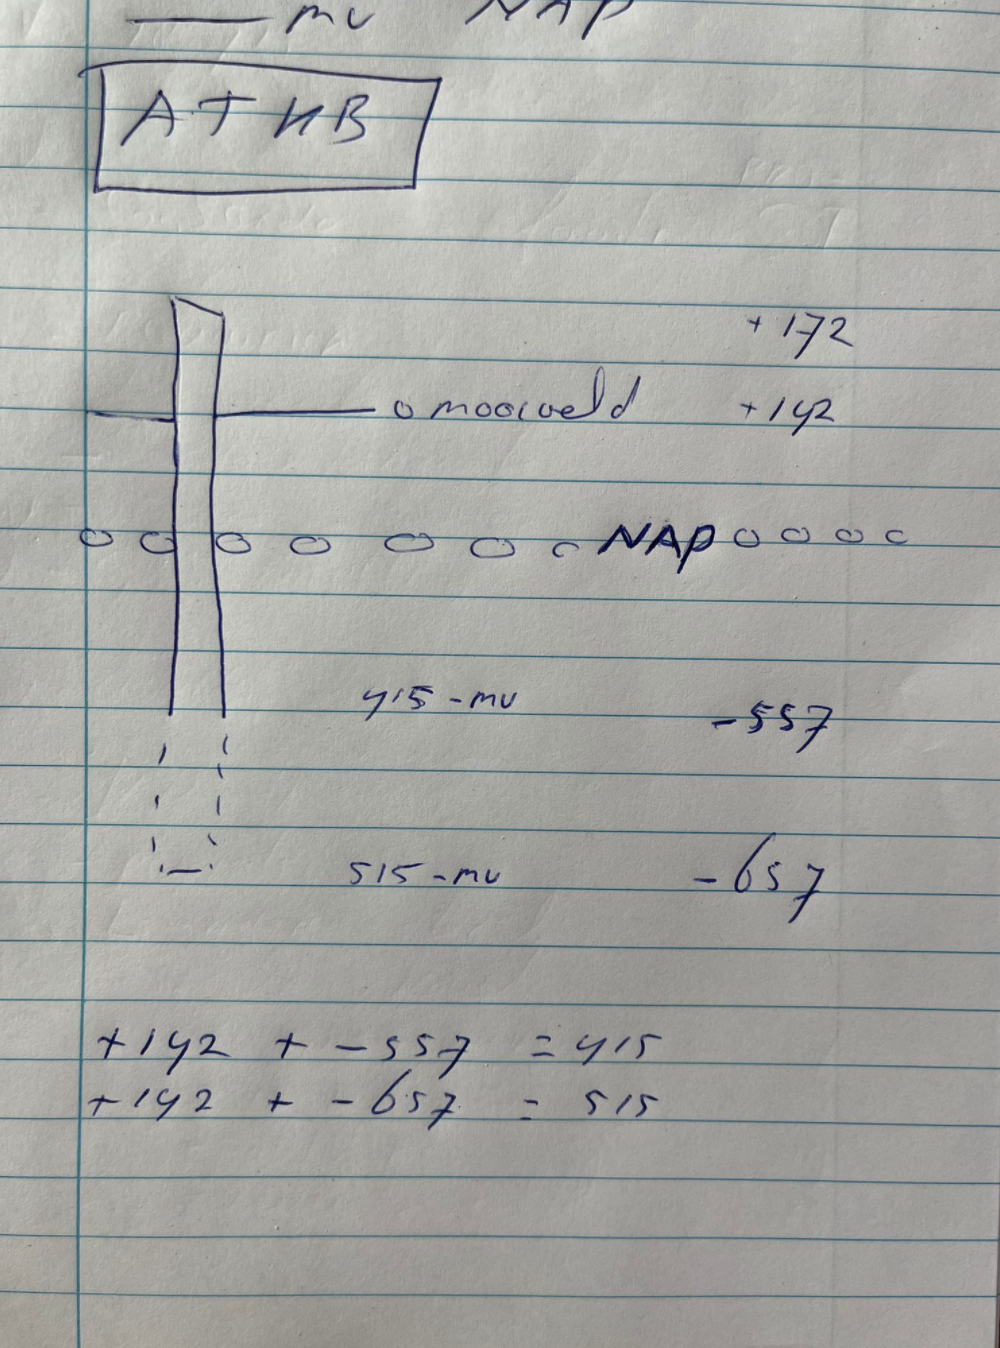 mv NAP
ATKB
+172
omaaiveld +142
NAP
415-mv -557
515-mv -657
+142 + -557 = 415
+142 + -657 = 515